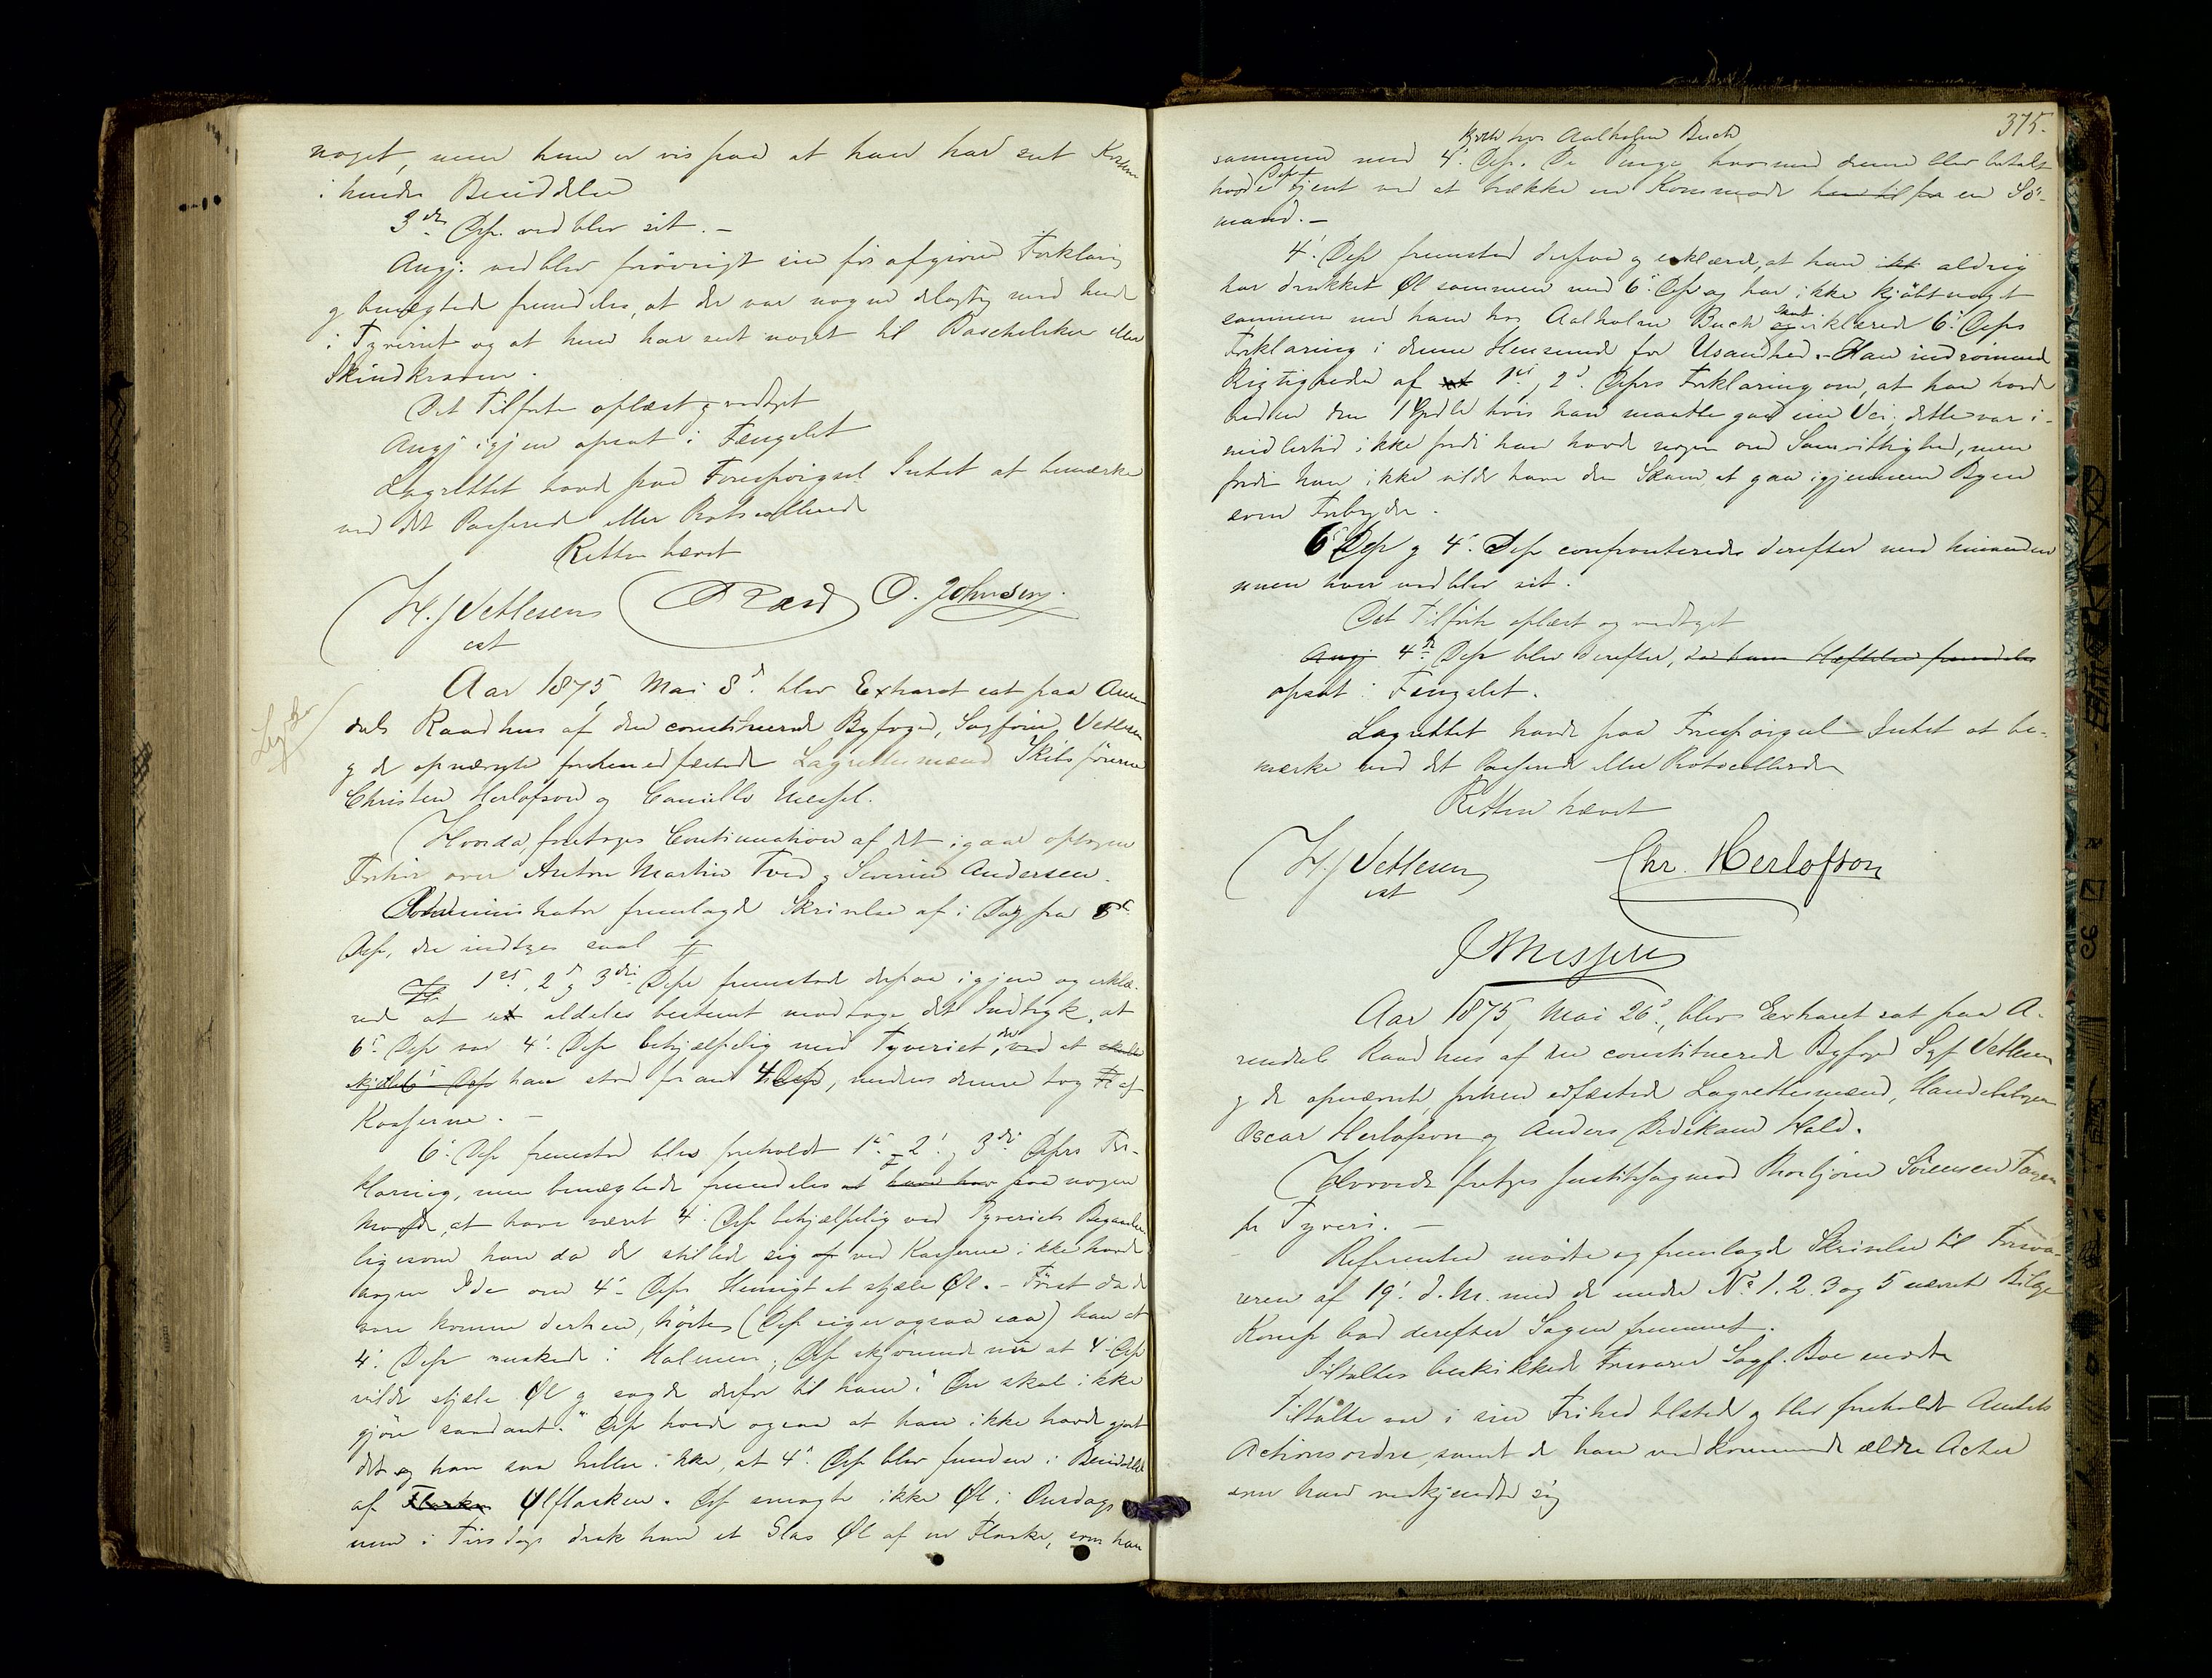 noget, men hun er vis paa at hun har set Kassen
i hendes Besiddelse
3die Dep. vedblev sit. –
Angj. vedblev forøvrigt sin før afgivne Forklaring
og benægtede fremdeles, at der var nogen delagtig med hende
i Tyveriet og at hun har set noget til eller
Skindkraven.
Det Tilførte oplæst og vedtaget
Angj igjen opsat i Fængslet
Lagrettet havde paa Forespørgsel Intet at bemærke
ved det Passerede eller Protocollerede
Retten hævet
H. J Vetlesen O. Johnsen
cst
Aar 1875, Mai 8d. blev Extraret sat paa Aren-
dals Raadhus af den constituerede Byfoged, Sagfører Vetlesen
og de opnævnte forhen edfæstede Lagrettesmænd Skibsførerne
Christen Herlofson og Camillo
Hvorda foretoges Continuation af det igaar optagne
Forhør over Anton Martin Tved og Severin Andersen.
Administrator fremlagde Skrivelse af i Dag fra 5te
Dep, der indtages saal #
# 1ste, 2d og 3die Dep fremstode derpaa igjen og erklæ-
rede at aldeles bestemt modtage det Indtryk, at
6te Dep var 4. Dep behjælpelig med Tyveriet, ved at skulle
skjule 6te Dep han stod foran 4 Dep, medens denne tog af
Kasserne. –
6. Dep fremstod blev foreholdt 1ste – 2. og 3die Deps For-
klaring, men benægtede fremdeles at have har paa nogen
Maade, at have været 4. Dep behjælpelig ved Tyveriets Begaaelse
ligesom han da de stillede sig op ved Kasserne ikke havde
nogen Ide om 4. Deps Hensigt at stjæle Øl. – Først da de
vare komne derhen, hørte (Dep siger ogsaa saa) han at
4. Dep ruskede i Halmen, Dep skjønnede nu at 4. Dep
vilde stjæle Øl og sagde derfor til ham: "Du skal ikke
gjøre saadant." Dep ogsaa at han ikke havde gjort
det og han saa heller ikke, at 4. Dep blev funden i Besiddelse
af Flasken Ølflasken. Dep smagte ikke Øl i Onsdags
men i Tirsdags drak han et Glas Øl af en Flaske, som han
375.
kjøbte hos Aalholm Buch
sammen med 4. Dep. De Penge hvormed denne blev betalt
havde Dep tjent ved at trække en Kommode hen til fra en Sø-
mand. –
4. Dep fremstod derpaa og erklærede, at han ikke aldrig
har drukket Øl sammen med 6. Dep og har ikke kjøbt noget
sammen med ham hos Aalholm Buch samt og erklærede 6. Deps
Forklaring i denne Henseende for Usandhed. – Han indrømmed
Rigtigheden af at 1ste, 2d. Deps Forklaring om, at han havde
den hvis han maatte gaa sin Vei; dette var i-
midlertid ikke fordi han havde nogen ond Samvittighed, men
fordi han ikke vilde have den Skam at gaa igjennem Byen
som Forbryder.
6 Dep og 4. Dep confronteredes derefter med hinanden
men hver vedblev sit.
Det Tilførte oplæst og vedtaget
Angj 4de Dep blev derefter, da hans Hæftelse fremdeles
opsat i Fængslet.
Lagrettet havde paa Forespørgsel Intet at be-
mærke ved det Passerede eller Protocollerede
Retten hævet
H. J Vetlesen Chr. Herlofson
cst
Aar 1875, Mai 26d, blev Extraret sat paa A-
rendals Raadhus af den constituerede Byfoged Sgf Vetlesen
og de opnævnte, forhen edfæstede Lagrettesmænd, Handelsborger
Oscar Herlofson og Anders Hald.
Hvorved foretages Justitssag mod Thorbjørn Sørensen
for Tyveri. –
Referenten mødte og fremlagde Skrivelse til Forsva-
reren af 19. d. M. med de under No 1. 2. 3 og 5 nævnte Bilage
bad derefter Sagen fremmet.
Tiltaltes beskikkede Forsvarer Sagf. Boe mødte
Tiltalte var i sin Frihed tilstede og blev foreholdt Amtets
Actionsordre, samt de ham vedkommende ældre Acter
som han vedkjendte sig